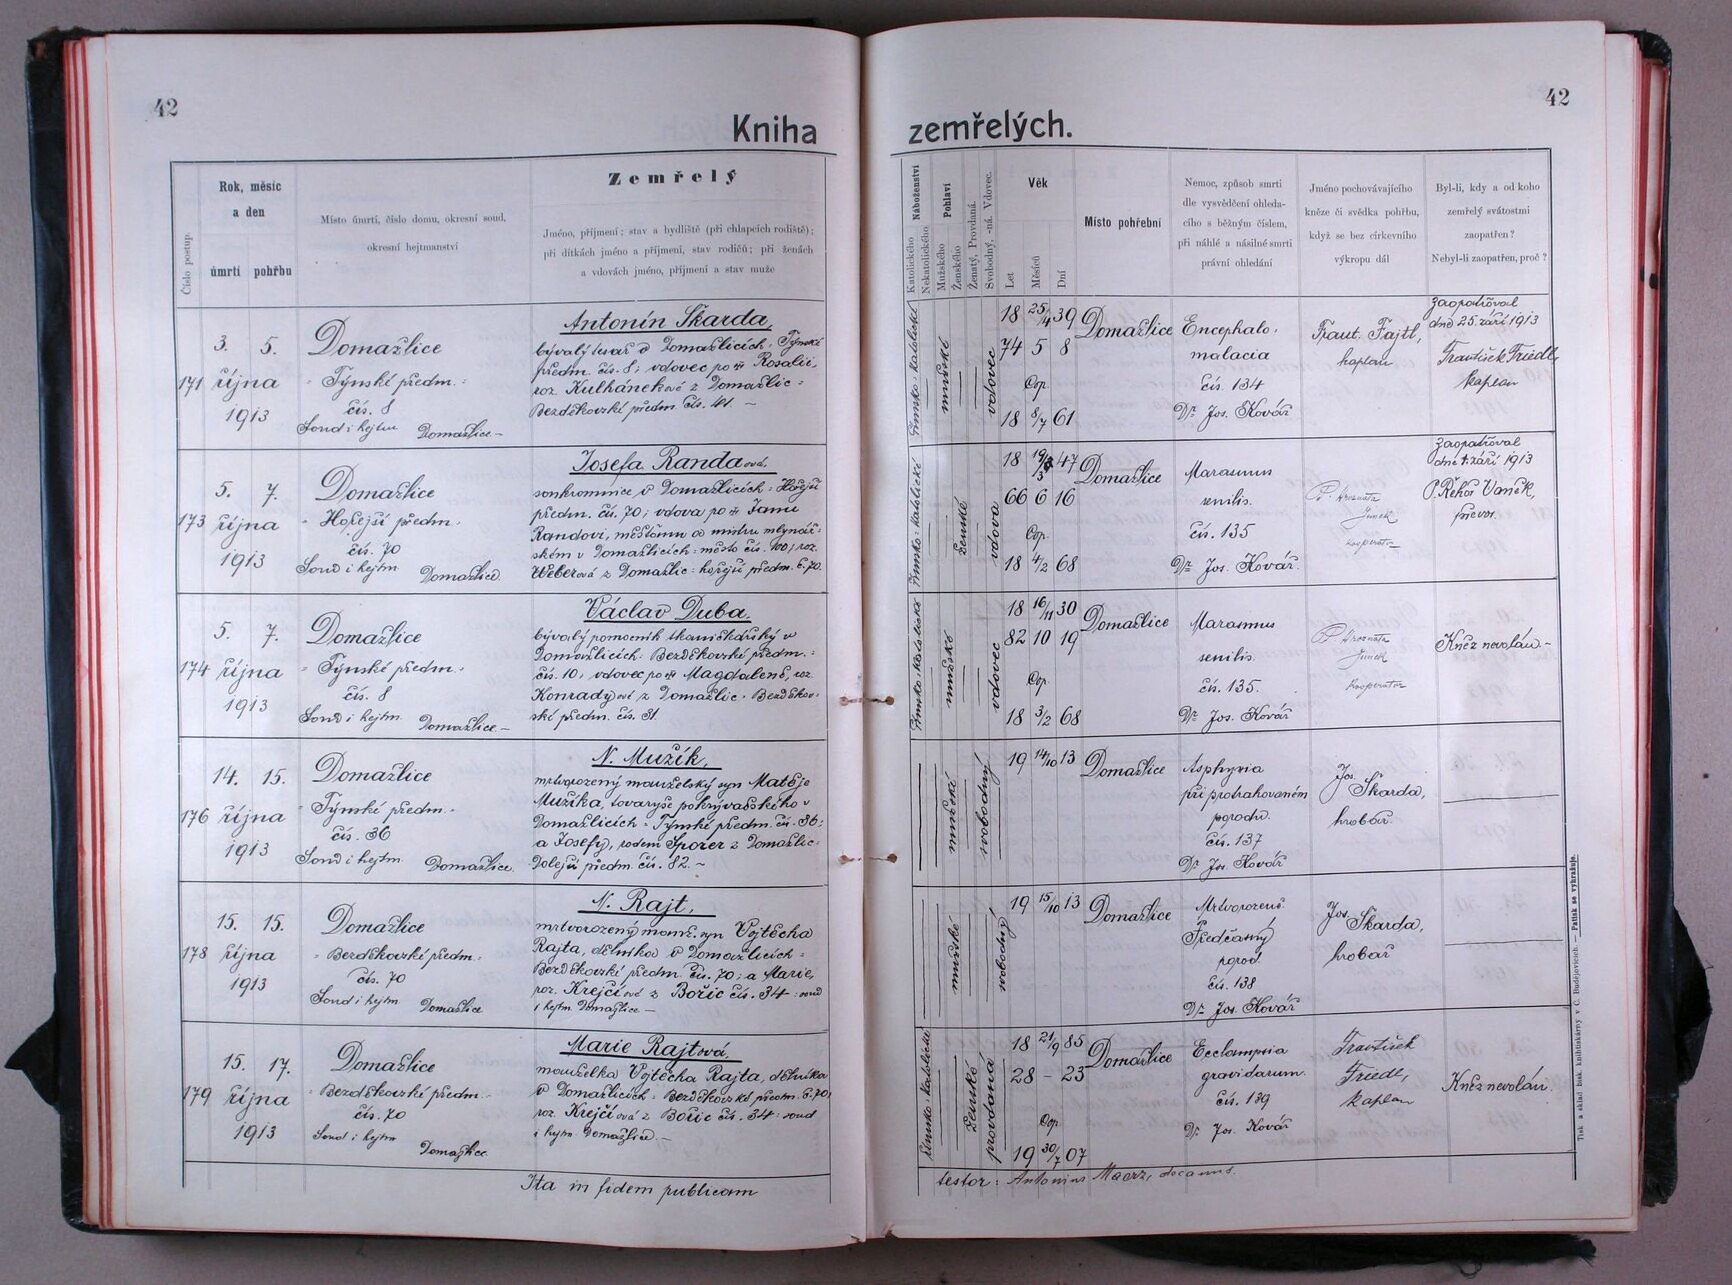 42
42
Kniha zemřelých.
Číslo postup.
Rok, měsíc
a den
úmrtí pohřbu
Místo úmrtí, číslo domu, okresní soud,
okresní hejtmanství
Zemřelý
Jméno, příjmení; stav a bydliště (při chlapcích rodiště);
při dítkách jméno a příjmení, stav rodičů; při ženách
a vdovách jméno, příjmení a stav muže
Náboženství
Katolického
Nekatolického
Pohlaví
Mužského
Ženského
Ženatý, Provdaná.
Svobodný, -ná. Vdovec.
Věk
Let
Měsíců
Dní
Místo pohřební
Nemoc, způsob smrti
dle vysvědčení ohleda-
cího s běžným číslem,
při náhlé a násilné smrti
právní ohledání
Jméno pochovávajícího
kněze či svědka pohřbu,
když se bez církevního
výkropu dál
Byl-li, kdy a od koho
zemřelý svátostmi
zaopatřen?
Nebyl-li zaopatřen, proč?
171
3. 5.
října
1913
Domažlice
Týnské předm.
čís. 8
Soud i hejtm Domažlice
Antonín Škarda,
bývalý tesař v Domažlicích, Týnské
předm. čís. 8; vdovec po Rosalii,
roz. Kulhánkové z Domažlic
Bezděkovské předm. čís. 41.
římsko-katolické
mužské
vdovec
18 25/4 39
74 5 8
Cop.
18 8/7 61
Domažlice
Encephalo-
malacia
čís. 134
Dr. Jos. Kovář
Frant. Fajtl,
kaplan
Zaopatřoval
dne 25. září 1913
František Friedl,
kaplan
173
5. 7.
října
1913
Domažlice
Hořejší předm.
čís. 70
Soud i hejtm Domažlice
Josefa Randaová,
soukromnice v Domažlicích: Hořejší
předm. čís. 70; vdova po Janu
Randovi, měšťanu a mistru mlynář-
ském v Domažlicích: město čís. 100; roz.
Weberová z Domažlic: hořejší předm. č. 70.
římsko-katolické
ženské
vdova
18 19/3 47
66 6 16
Cop.
18 4/2 68
Domažlice
Marasmus
senilis.
čís. 135
Dr. Jos. Kovář.
P. Hroznata
Junek
kooperator
Zaopatřoval
září 1913
P. Řehoř Vaněk,
převor.
174
5. 7.
října
1913
Domažlice
Týnské předm.
čís. 8
Soud i hejtm. Domažlice
Václav Duba,
bývalý pomocník tkaničkářský v
Domažlicích: Bezděkovské předm.:
čís. 10; vdovec po Magdaleně, roz.
Konradyové z Domažlic: Bezděkov-
ské předm. čís. 31.
římsko-katolické
mužské
vdovec
18 16/11 30
82 10 19
Cop.
18 3/2 68
Domažlice
Marasmus
senilis.
čís. 135.
Dr. Jos. Kovář
P. Hroznata
Junek
kooperator
Kněz nevolán
176
14. 15.
října
1913
Domažlice
Týnské předm.
čís. 36
Soud i hejtm. Domažlice.
N. Mužík,
mrtvorozený manželský syn Matěje
Mužíka, tovaryše pokrývačského v
Domažlicích: Týnské předm. čís. 36;
a Josefy, rodem Sporer z Domažlic:
Dolejší předm. čís. 82.
mužské
svobodný
19 14/10 13
Domažlice
Asphyxia
při protrahovaném
porodu.
čís. 137
Dr. Jos. Kovář
Jos. Škarda,
hrobař.
178
15. 15.
října
1913
Domažlice
Bezděkovské předm.
čís. 70
Soud i hejtm Domažlice
N. Rajt,
mrtvorozený manž. syn Vojtěcha
Rajta, dělníka v Domažlicích:
Bezděkovské předm. čís. 70; a Marie,
roz. Krejčíové z Bořic čís. 34: soud
i hejtm. Domažlice
mužské
svobodný
19 15/10 13
Domažlice
Mrtvorozenc
Předčasný
porod.
čís. 138
Dr. Jos. Kovář
Jos. Škarda,
hrobař
179
15. 17.
října
1913
Domažlice
Bezděkovské předm.
čís. 70
Soud i hejtm Domažlice
Marie Rajtová,
manželka Vojtěcha Rajta, dělníka
v Domažlicích: Bezděkovské předm. č. 70;
roz. Krejčíová z Bořic čís. 34: soud
i hejtm. Domažlice.
římsko-katolické
ženské
provdaná
18 21/9 85
28 – 25
Cop.
19 30/7 07
Domažlice
Ecclampsia
gravidarum.
čís. 139
Dr. Jos. Kovář
František
Friedl,
kaplan
Kněz nevolán.
Ita in fidem publicam testor: Antonius
Tisk a sklad bisk. knihtiskárny v Č. Budějovicích. — Patisk se vyhražuje.